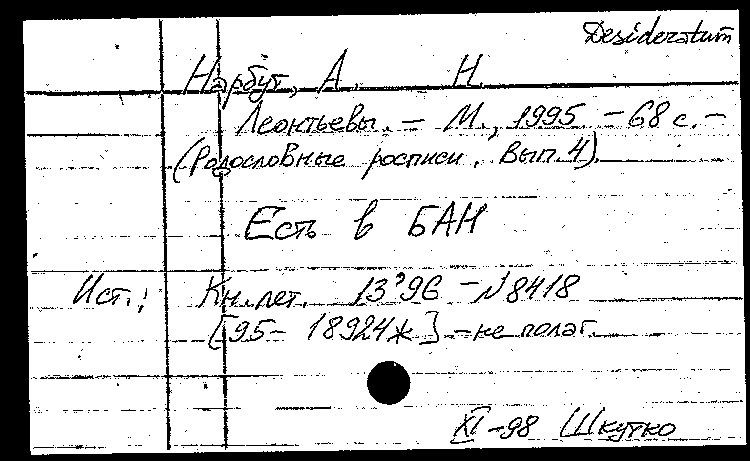 Desideratum
Нарбут, А. Н.
Леонтьевы. – М., 1995 – 68 с. –
(Родословные росписи. Вып. 4).
Есть в БАН
Ист.: Кн. лет. 13'96 – №8418
[95– 18924ж] – не полаг.
XI–98 Шкутко